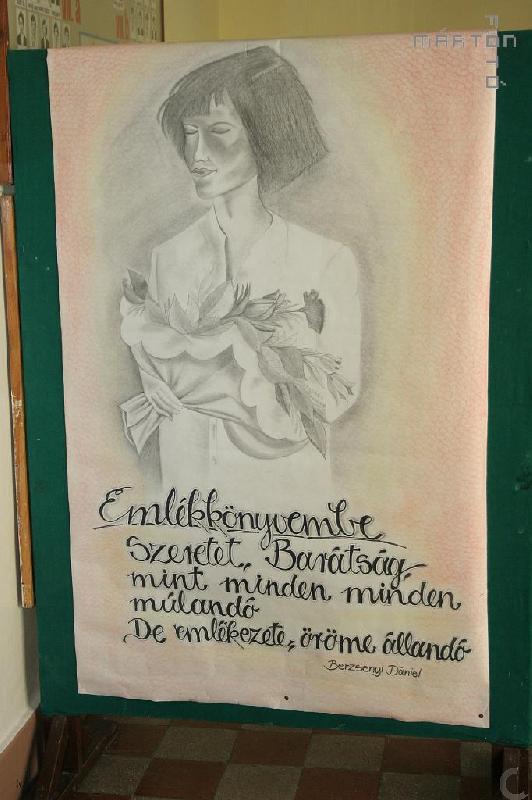 MÁRTON
FOTÓ
Emlékkönyvembe
Szeretet, Barátság,
mint minden minden
múlandó
De emlékezete, öröme állandó
Berzsenyi Dániel
C